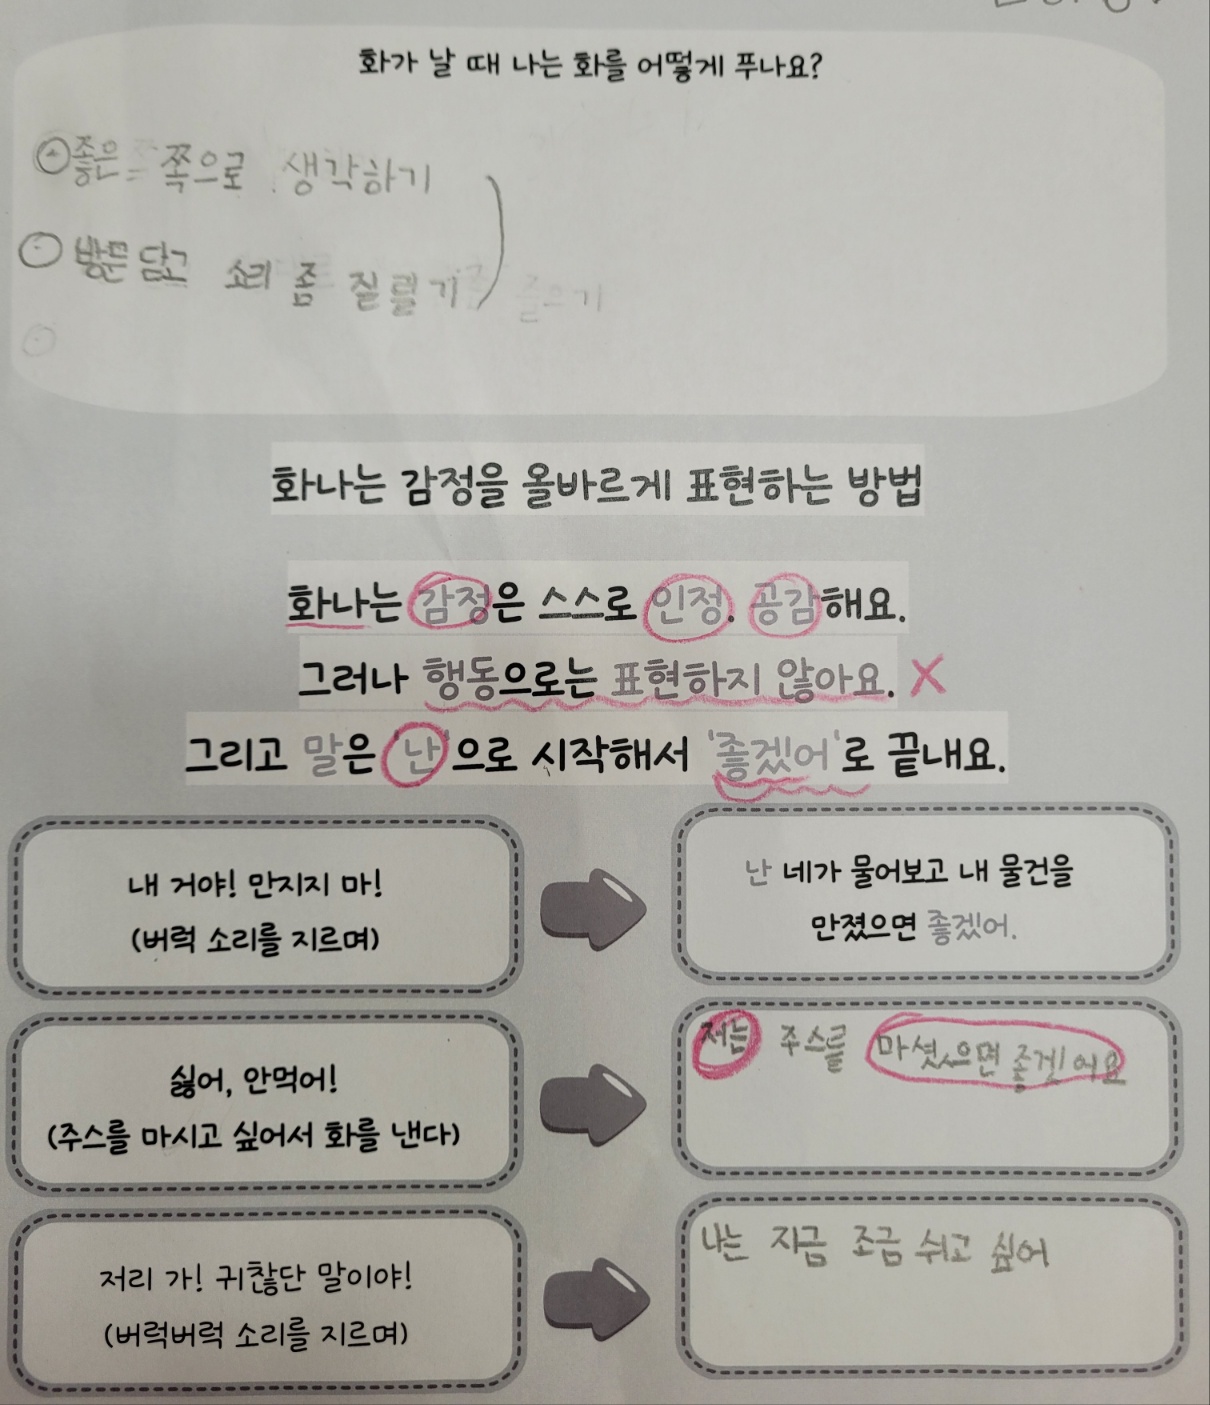 화가 날 때 나는 화를 어떻게 푸나요?
좋은 쪽으로 생각하기
방문 닫고 소리 좀 질를기
화나는 감정을 올바르게 표현하는 방법
화나는 감정은 스스로 인정. 공감해요.
그러나 행동으로는 표현하지 않아요. X
그리고 말은 '난'으로 시작해서 '좋겠어'로 끝내요.
내 거야! 만지지 마!
(버럭 소리를 지르며)
난 네가 물어보고 내 물건을
만졌으면 좋겠어.
싫어, 안먹어!
(주스를 마시고 싶어서 화를 낸다)
저는 주스를 마셧으면 좋겐어요
저리 가! 귀찮단 말이야!
(버럭버럭 소리를 지르며)
나는 지금 조금 쉬고 싶어